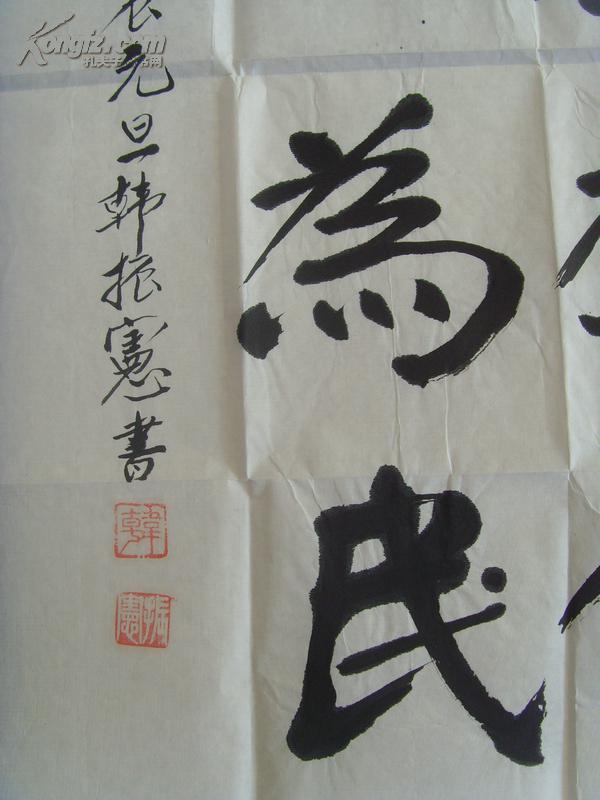 為民
辰元旦韩振憲書
韓
振憲
Kongfz.com
孔夫子旧书网